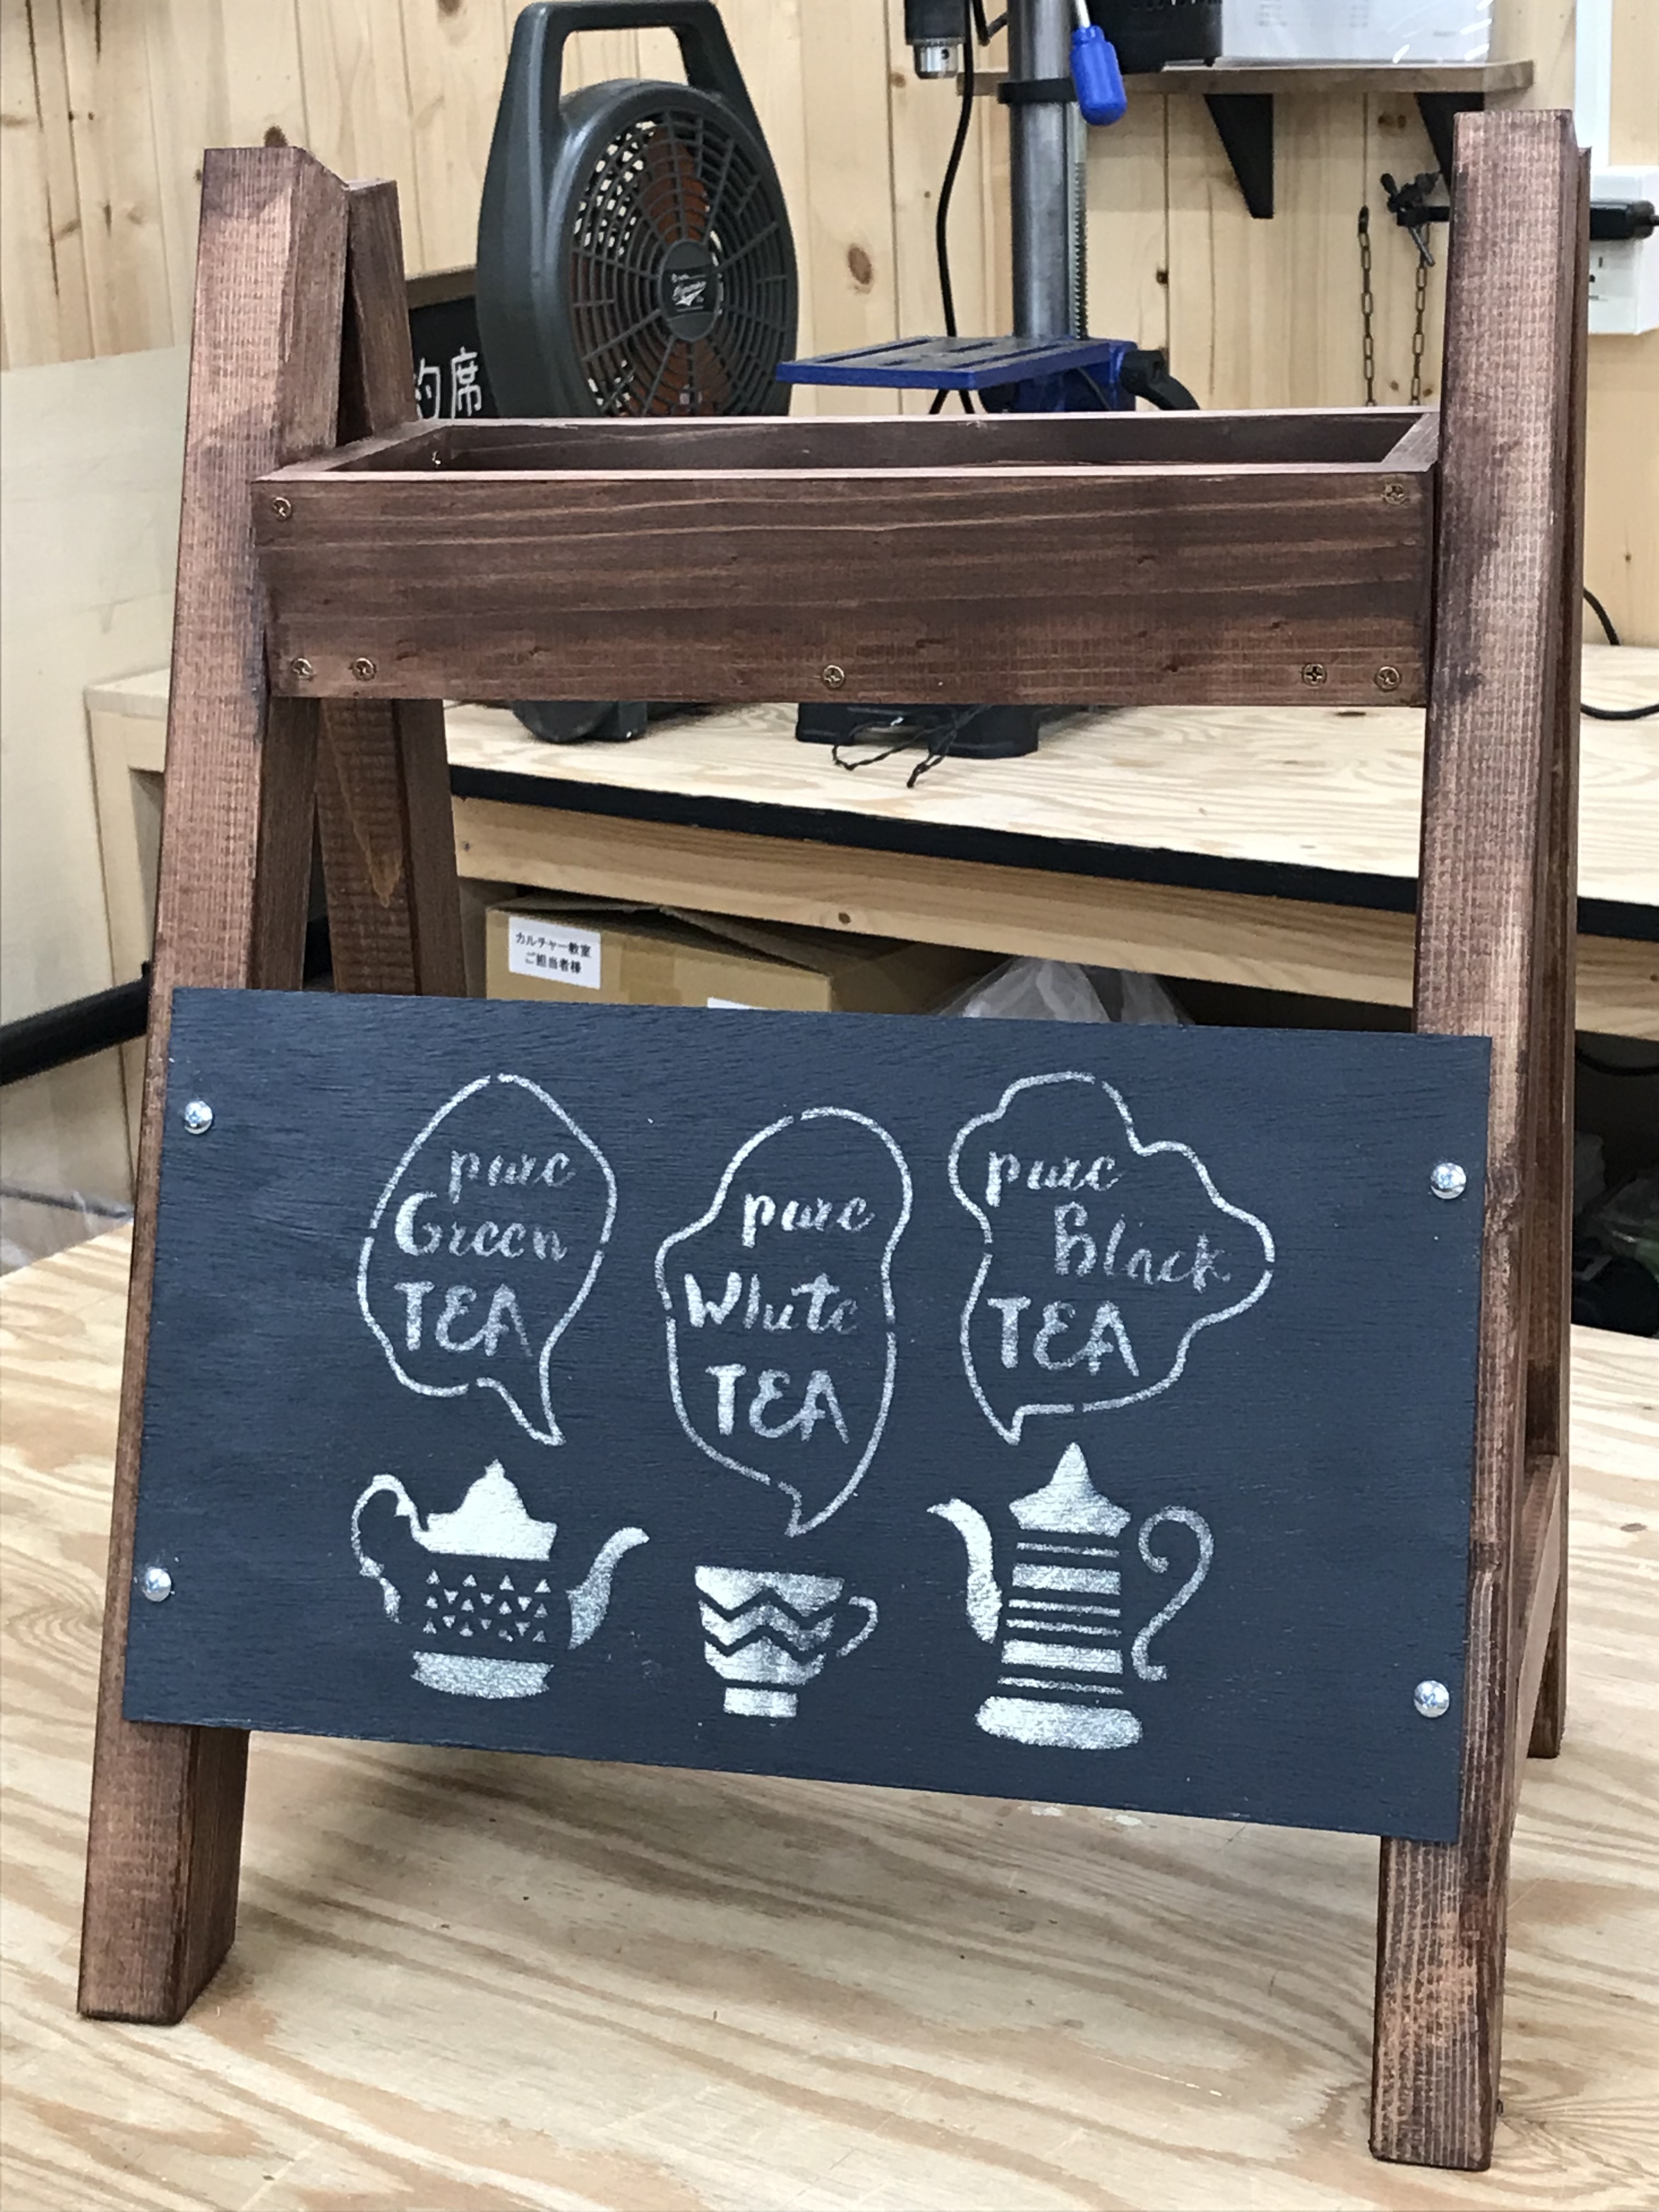 約席
カルチャー教室
ご担当者様
pure
Green
TEA
pure
White
TEA
pure
Black
TEA